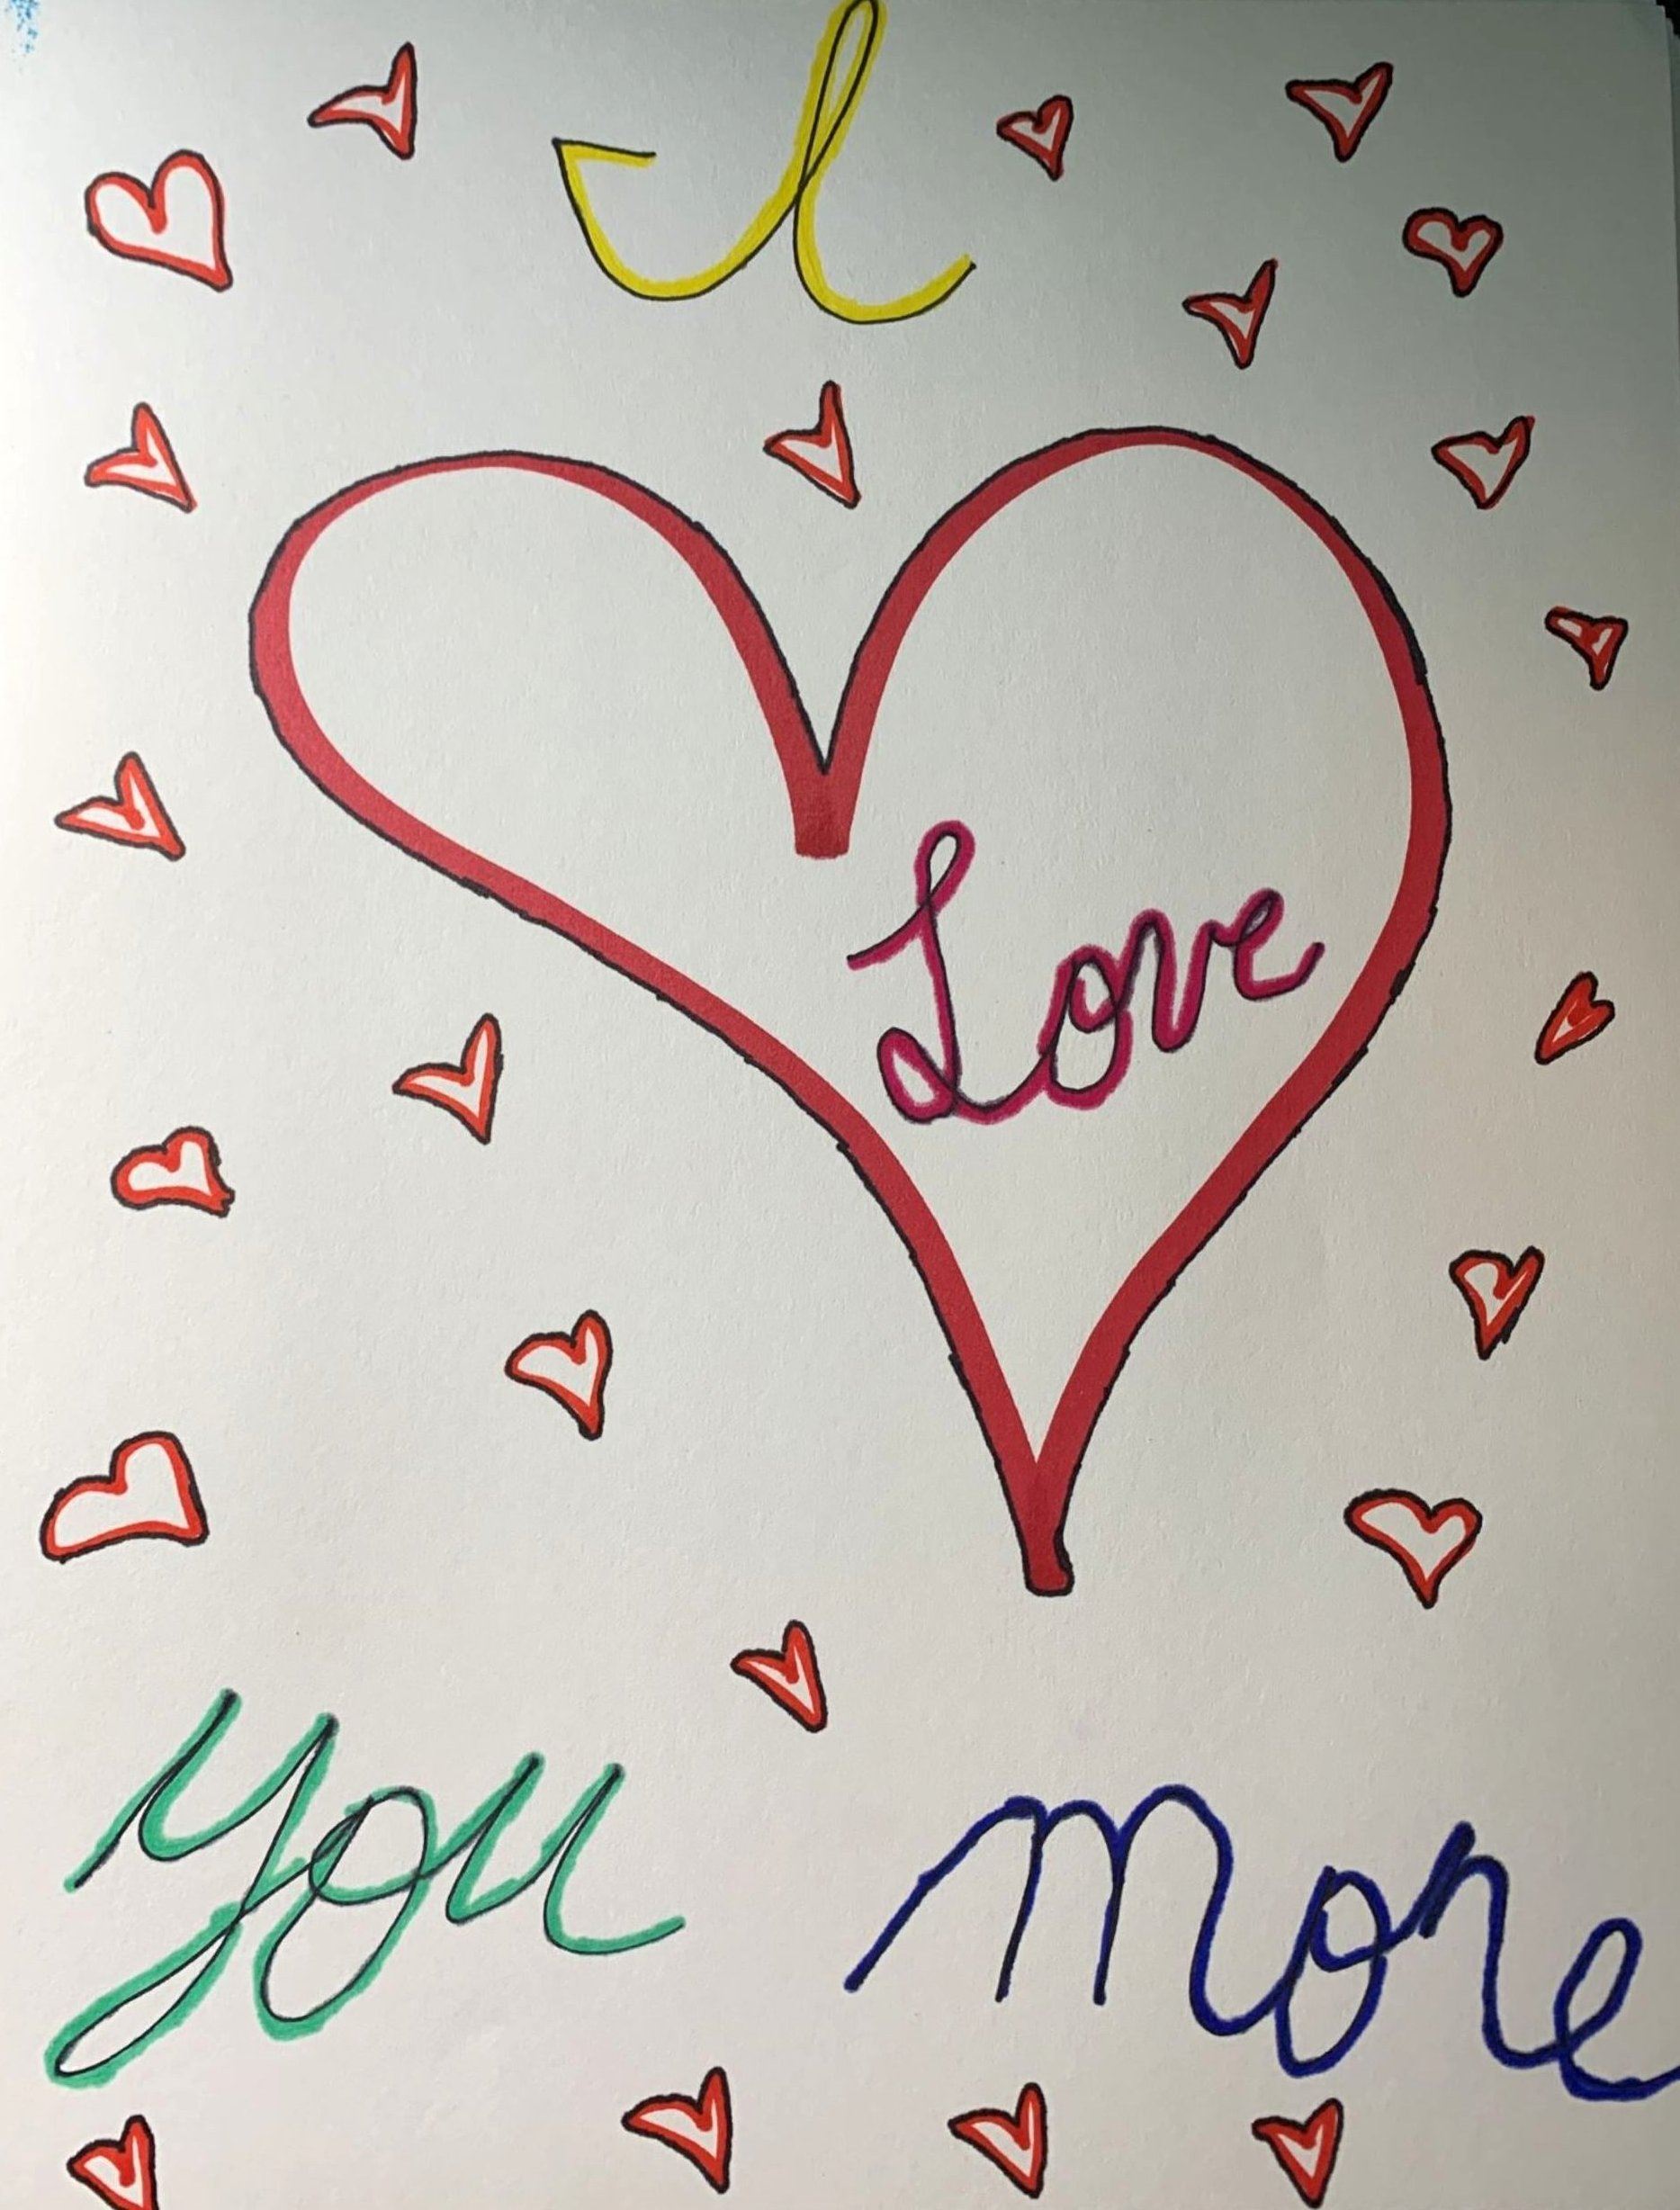 I
Love
you more